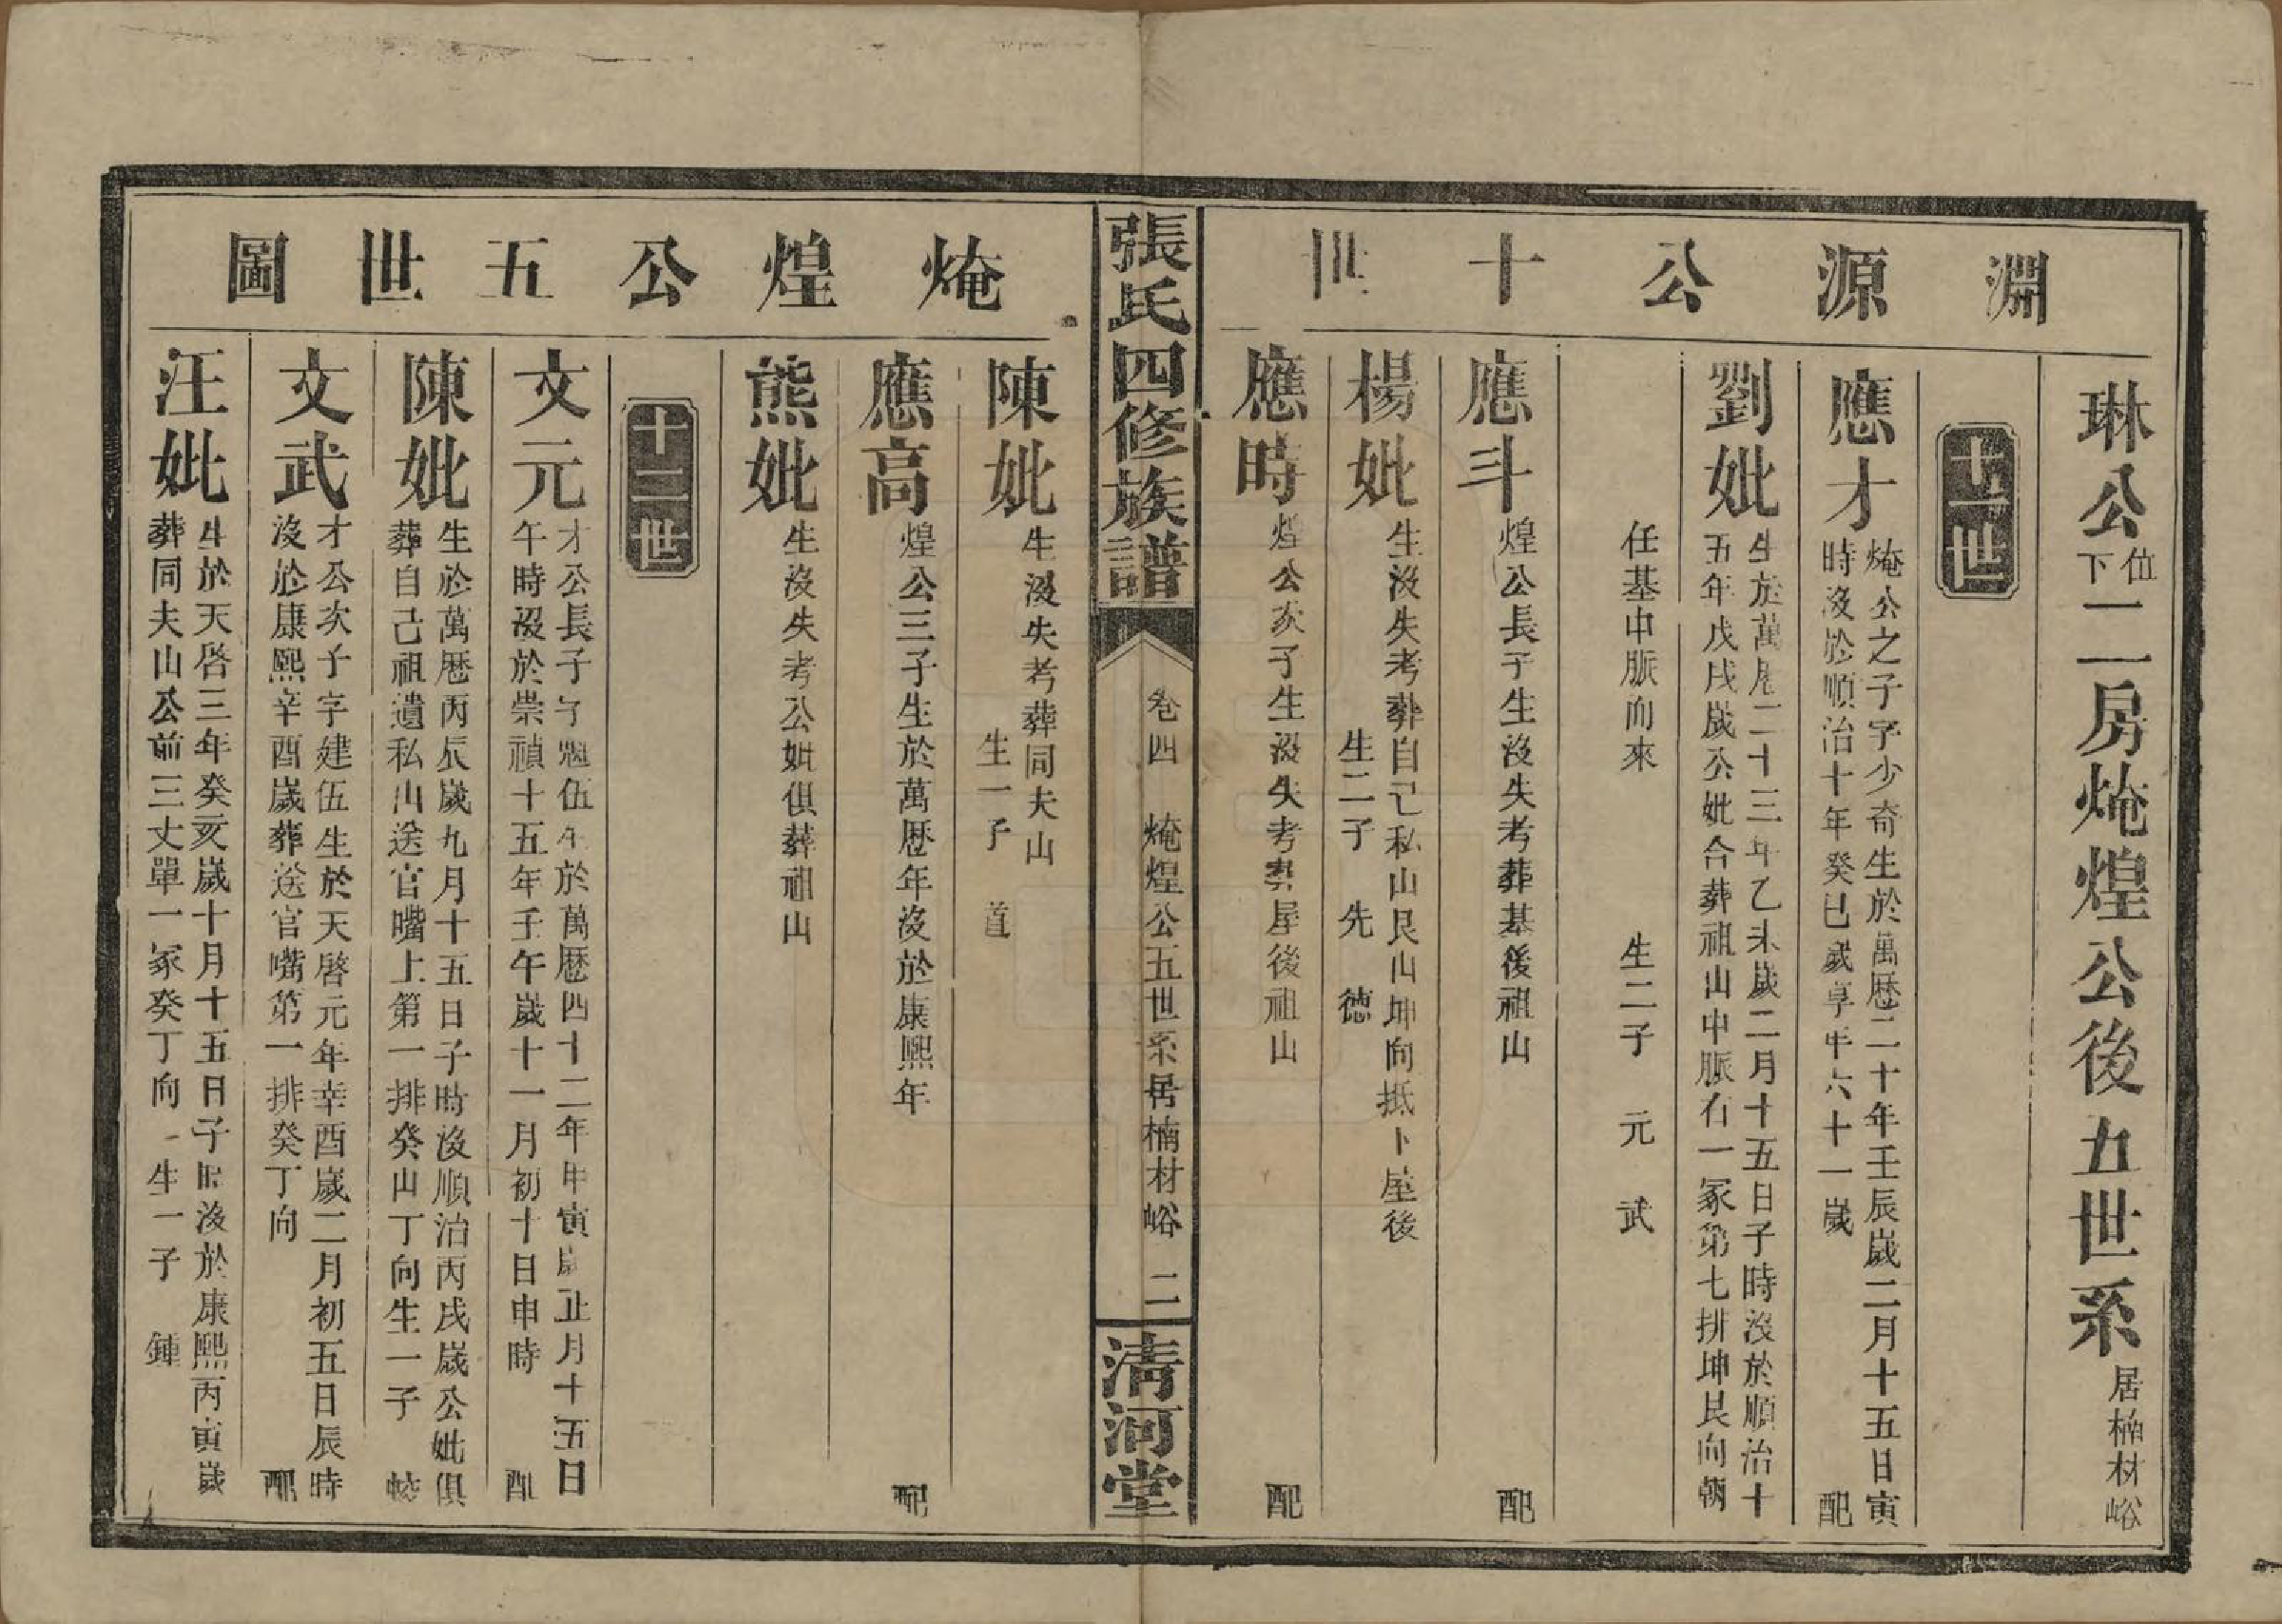 淵源公十世
琳公位下一二房焔煌公後五世系居楠材峪
十一世
應才焔公之子字少奇生於萬歷二十年壬辰歲二月十五日寅
時沒於順治十年癸巳歲享年六十一歲 配
劉妣生於萬歷二十三年乙未歲二月十五日子時沒於順治十
五年戊戌歲公妣合葬祖山中脈右一冢第七排坤艮向朝
任基中脈向來 生二子 元 武
應斗煌公長子生沒失考葬基後祖山 配
楊妣生沒失考葬自己私山艮山坤向抵卜屋後
生二子 先 德
應時煌公次子生沒失考葬屋後祖山 配
張氏四修族譜 卷四 焔煌公五世系居楠材峪 二 淸河堂
焔煌公五世圖
陳妣生沒失考葬同夫山
生一子 道
應高煌公三子生於萬歷年沒於康熙年 配
熊妣生沒失考公妣俱葬祖山
十二世
文元才公長子字 伍生於萬歷四十二年甲寅歲正月十五日
午時沒於崇禎十五年壬午歲十一月初十日申時 配
陳妣生於萬歷丙辰歲九月十五日子時沒順治丙戌歲公妣俱
葬自己祖遺私山送官嘴上第一排癸山丁向生一子
文武才公次子字建伍生於天啓元年辛酉歲二月初五日辰時
沒於康熙辛酉歲葬送官嘴第一排癸丁向 配
汪妣生於天啓三年癸亥歲十月十五日子時沒於康熙丙寅歲
葬同夫山公前三丈單一冢癸丁向 生一子 鍾